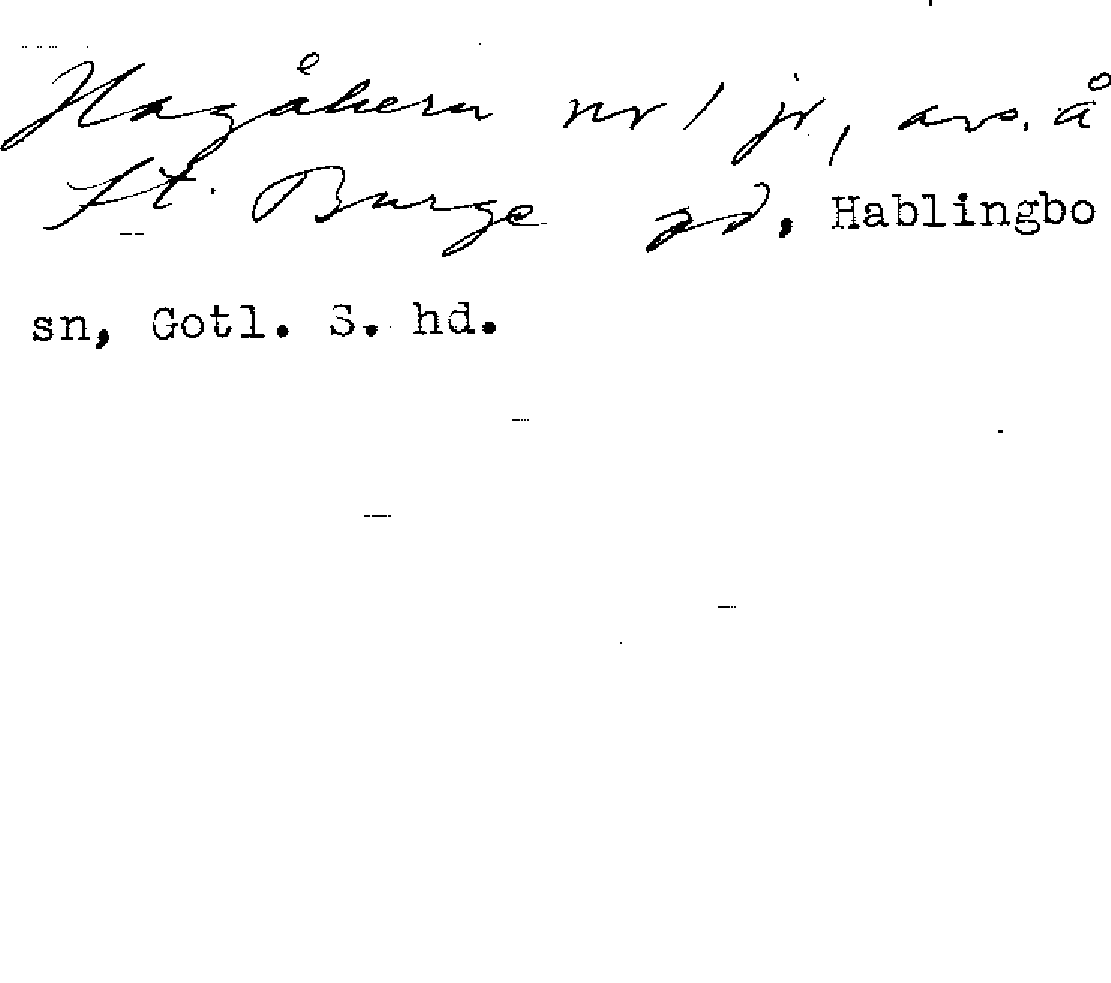 Hagåkern nr 1 jr, avs. å
St. Burge gd, Hablingbo
sn, Gotl. S. hd.